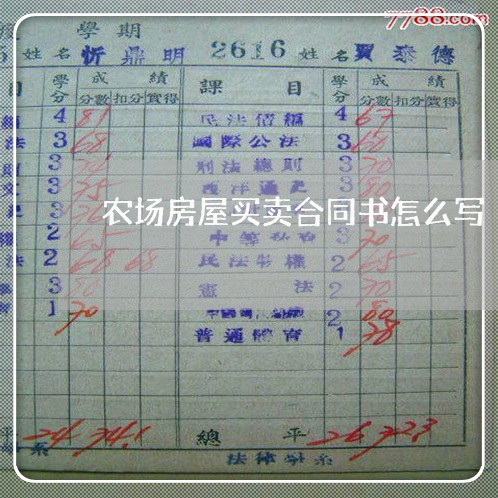 7788.com
學期
姓名 忻鼎明 2616 姓名 賈泰德
目 學分 成績 課目 學分 成績
分數 扣分 實得 分數 扣分 實得
4 81 民法債編 4 67
法 3 68 國際公法 3 60
3 刑法總則 3 70
文 3 75 西洋通史 80
農场房屋买卖合同书怎么写
2 65 3 70
法 2 68 68 民法物權 2 65
3 80 憲法 2 70
1 70 2 80
普通體育 1 78
平 24 74.1 總平 26 72.3
系 法律學系